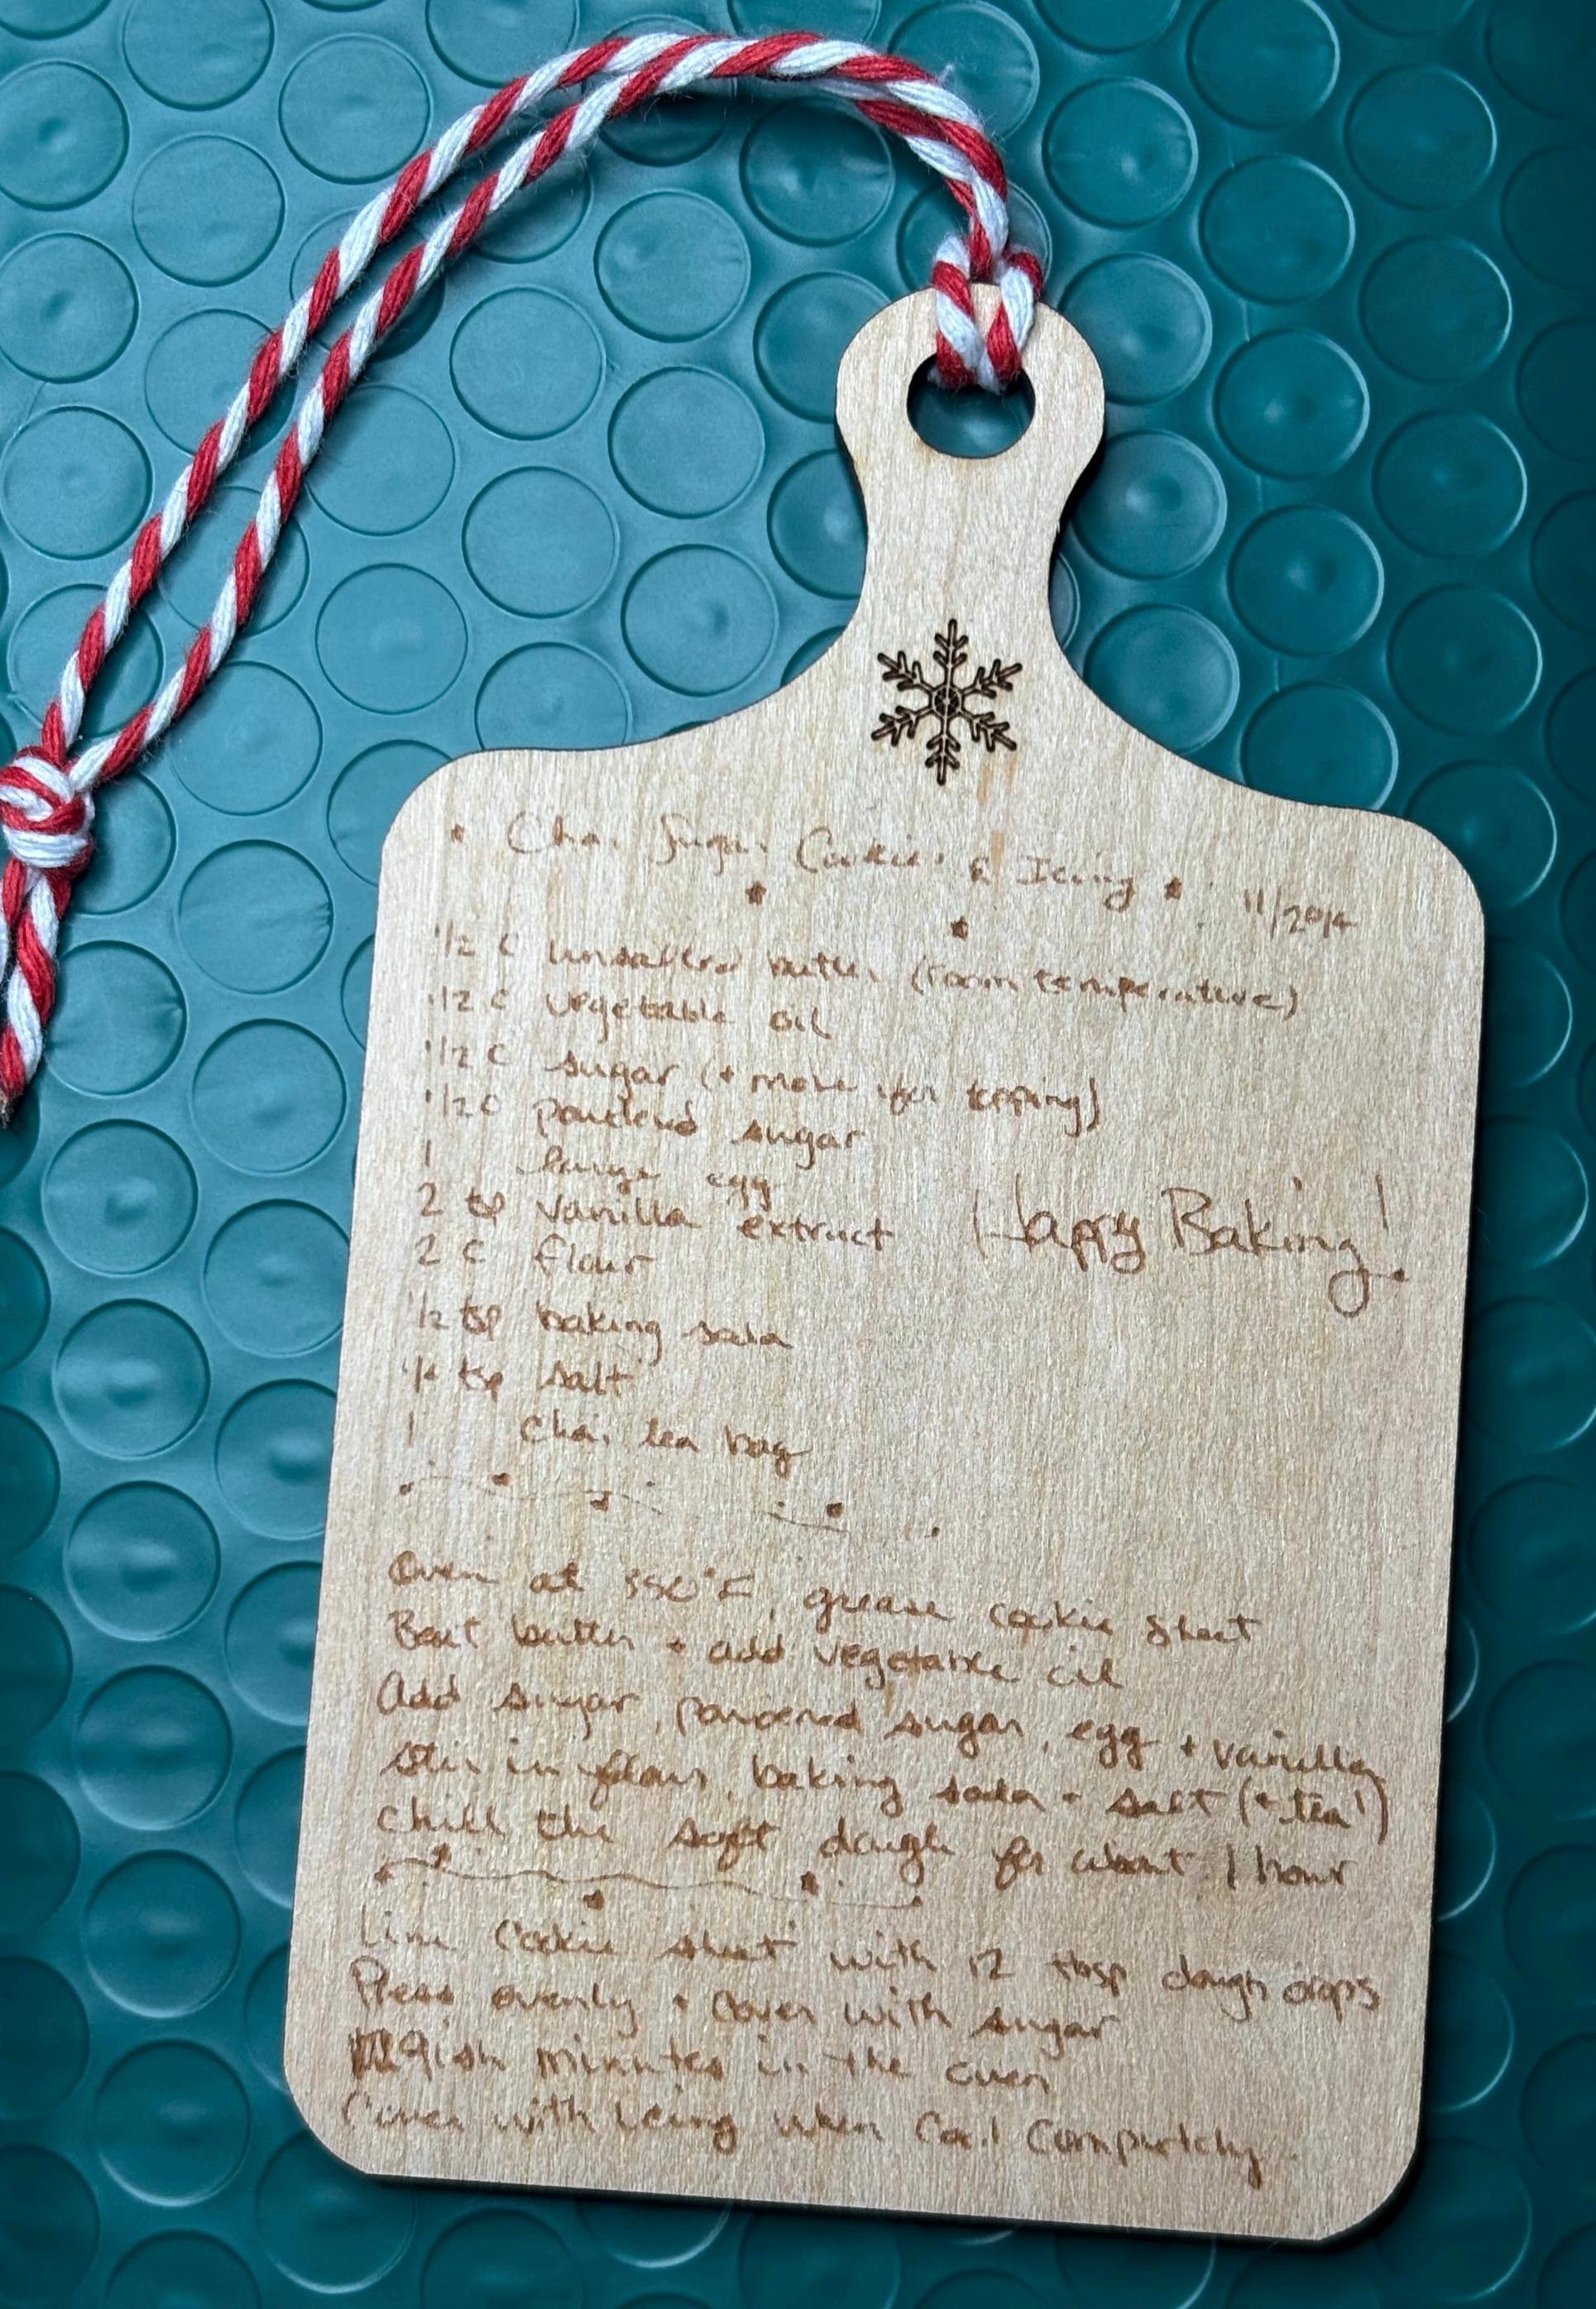 Chai Sugar Cookies & Icing 11/2014
1/2 C unsalted butter (room temperature)
1/2 C vegetable oil
1/2 C sugar (+ more for topping)
1/2 C powdered sugar
1 large egg
2 tsp vanilla extract
Happy Baking!
2 C flour
1/2 tsp baking soda
1/4 tsp salt
1 chai tea bag
Oven at 350°F, grease cookie sheet
Beat butter + add vegetable oil
Add sugar, powdered sugar, egg + vanilla
Stir in flour, baking soda + salt (+ tea!)
Chill the soft dough for about 1 hour
Line cookie sheet with 12 tbsp dough drops
Press evenly + cover with sugar
9ish minutes in the oven
Cover with icing when cool completely